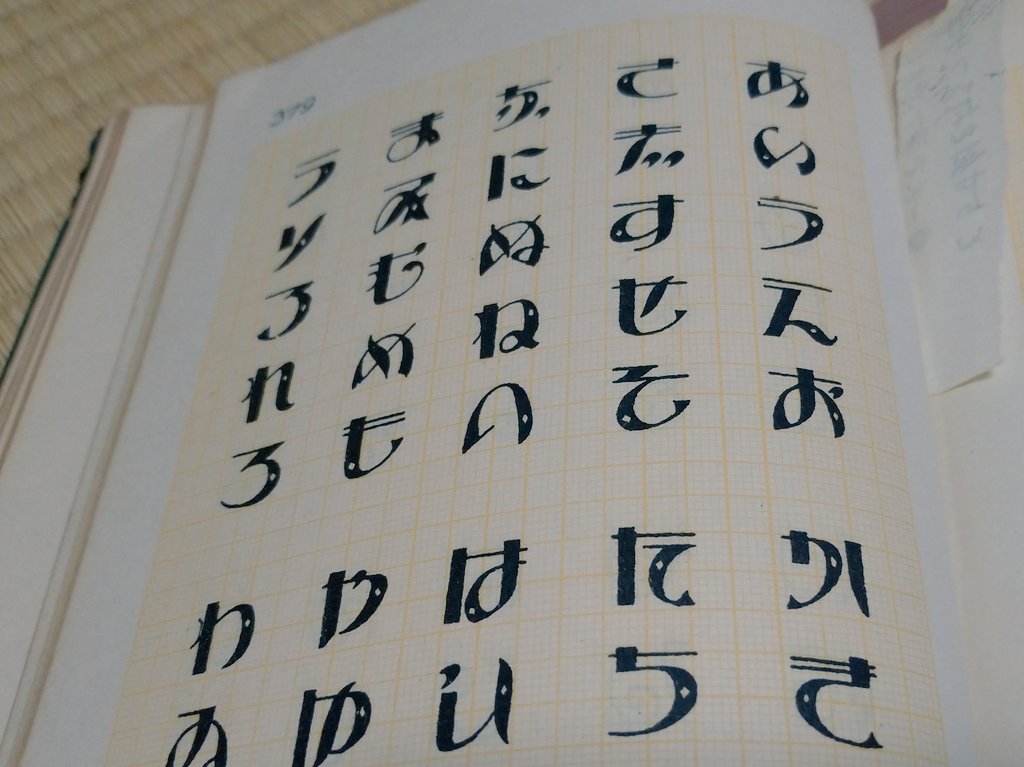 あいうえお
さしすせそ
なにぬねの
まみむめも
らりるれろ
かき
たち
はひ
やゆ
わゐ